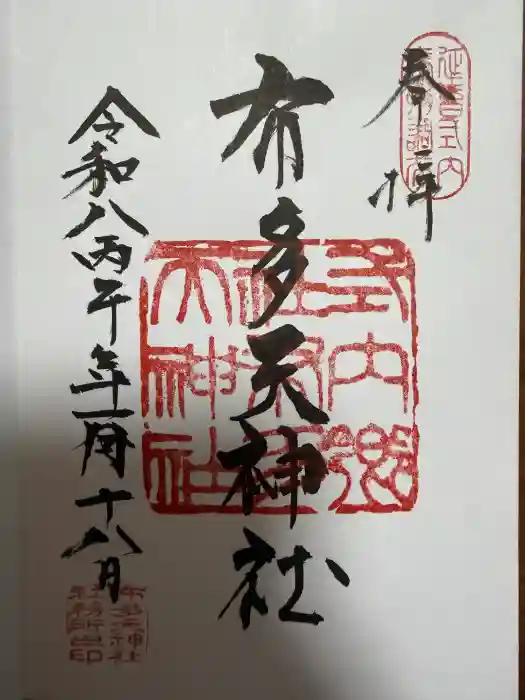 奉拝
延喜式内
有多天神社
式内郷
社有多
天神社
令和八丙午年一月十八日
有多天神社
社務所之印